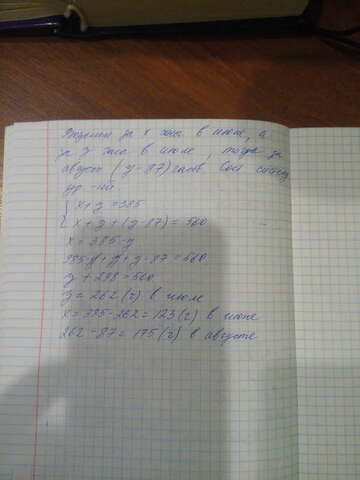 Возьмем за x часа в июне, а
за y часа в июле, тогда за
август (y - 87) часов. Сост систему
ур - ий
{ x + y = 385
{ x + y + (y - 87) = 560
x = 385 - y
385 - y + y + y - 87 = 560
y + 298 = 560
y = 262 (г) в июле
x = 385 - 262 = 123 (г) в июне
262 - 87 = 175 (г) в августе